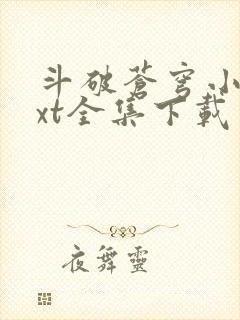 斗破蒼穹小
xt全集下載
夜舞靈